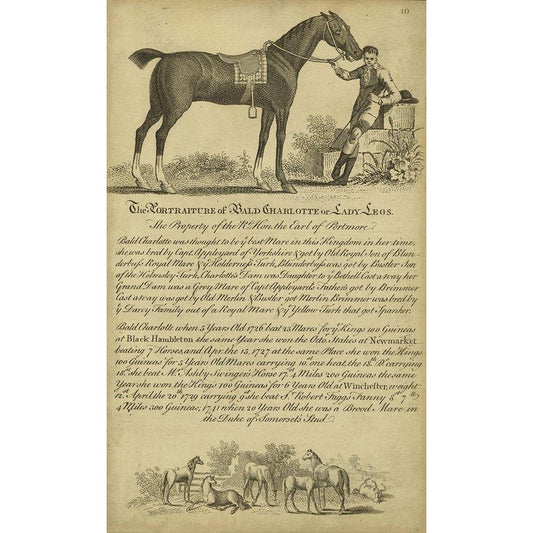 10
The Portraiture of Bald Charlotte or Lady Legs.
The Property of the Rt. Hon. the Earl of Portmore.
Bald Charlotte was thought to be ye best Mare in this Kingdom in her time,
she was bred by Capt. Appleyard of Yorkshire & got by Old Royal Son of Blun-
derbuss Royal Mare & ye Holderness Turk, Blunderbuss was got by Bustler Son
of the Helmsley Turk, Charlotte's Dam was Daughter to ye Bethell Cast away her
Grand Dam was a Grey Mare of Capt Appleyards Fathers got by Brimmer
Cast away was got by Old Merlin & Bustler got Merlin. Brimmer was bred by
ye Darcy Family out of a Royal Mare & ye Yellow Turk that got Spanker.
Bald Charlotte when 5 Years Old 1726 beat 23 Mares for ye Kings 100 Guineas
at Black Hambleton the same Year she won the Octo. Stakes at Newmarket
beating 7 Horses, and Apr. the 15, 1727 at the same Place she won the Kings
100 Guineas for 5 Years Old Mares carrying 10st. one heat, the 18th. Do. carrying
18st. she beat Mr. Ashby Swingers Horse 17st. 4 Miles 200 Guineas the same
Year she won the Kings 100 Guineas for 6 Years Old at Winchester, weight
12st. April the 20th 1729 carrying 9st she beat Sr. Robert Faggs Fanny 8st 7lb;
4 Miles 300 Guineas; 1741 when 20 Years Old she was a Brood Mare in
the Duke of Somersets Stud.